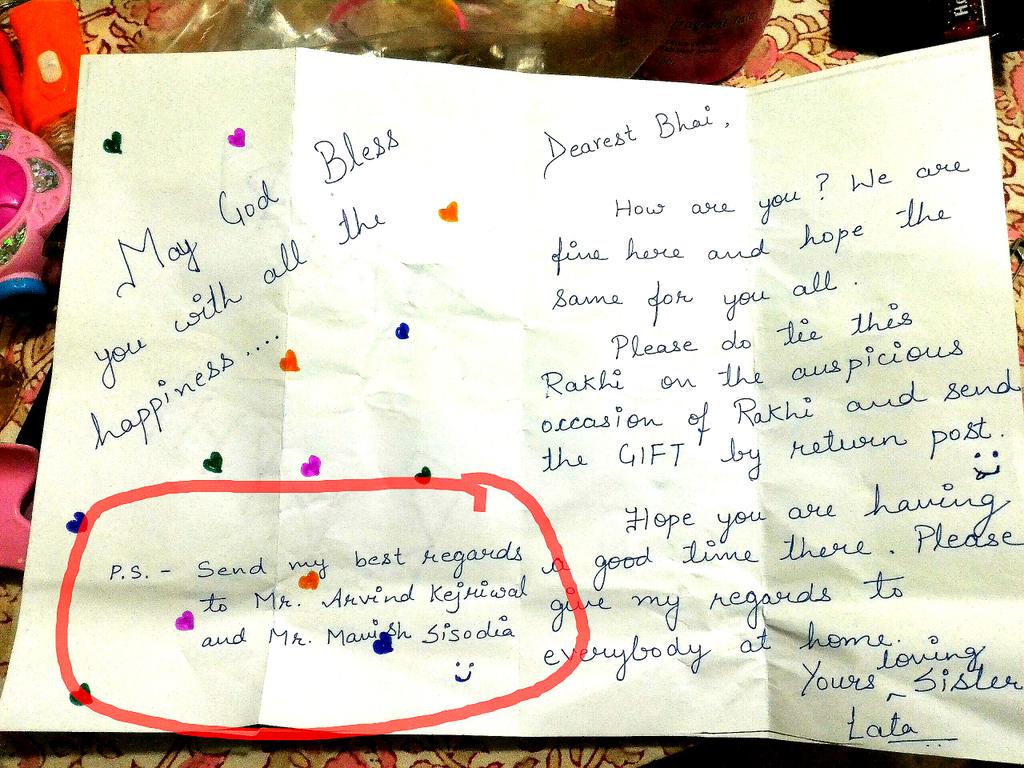 May God Bless
you with all the
happiness....
P.S. - Send my best regards
to Mr. Arvind Kejriwal
and Mr. Manish Sisodia
Dearest Bhai,
How are you? We are
fine here and hope the
same for you all.
Please do tie this
Rakhi on the auspicious
occasion of Rakhi and send
the GIFT by return post.
Hope you are having
a good time there. Please
give my regards to
everybody at home.
Yours loving Sister
Lata